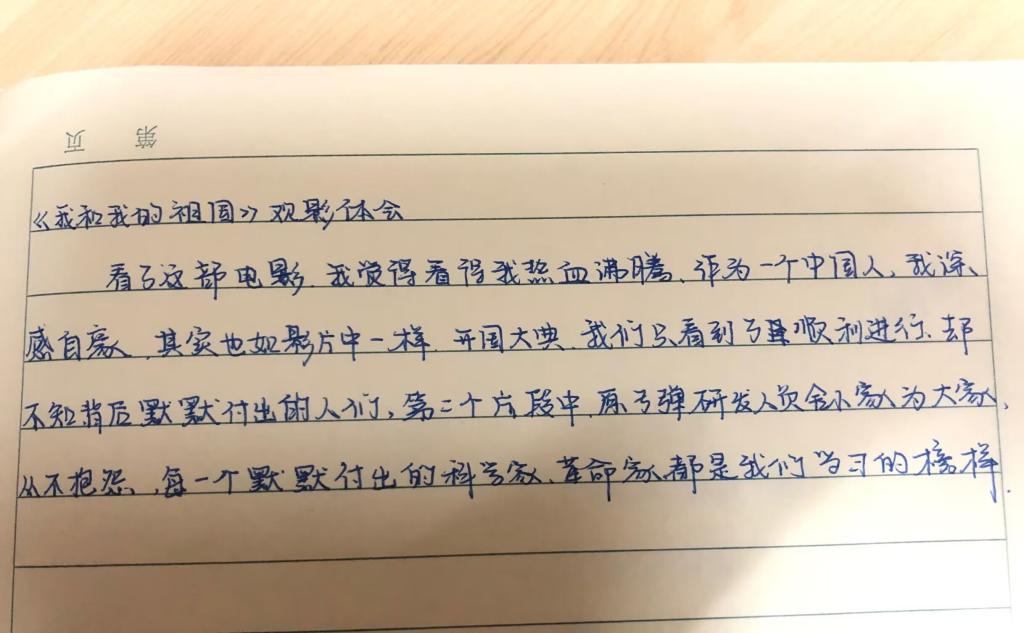 第 页
《我和我的祖国》观影体会
看了这部电影.我觉得看得我热血沸腾、作为一个中国人,我深、
感自豪.其实也如影片中一样.开国大典.我们只看到了其顺利进行.却
不知背后默默付出的人们,第二个片段中,原子弹研发人员舍小家为大家,
从不抱怨,每一个默默付出的科学家、革命家都是我们学习的榜样.